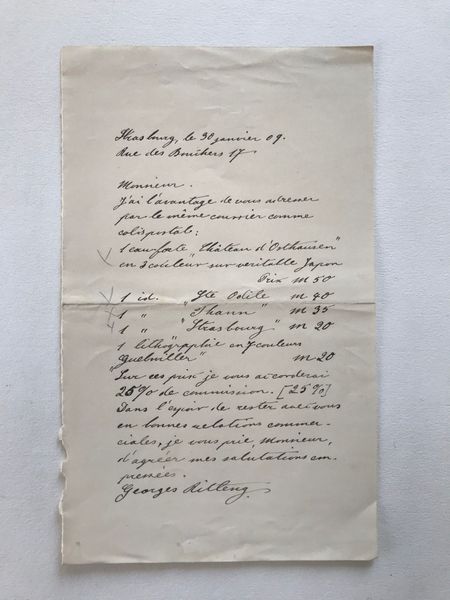 Strasbourg, le 30 janvier 09.
Rue des Bouchers 17.
Monsieur.
J'ai l'avantage de vous adresser
par le même courrier comme
colis postale:
1 eau-forte "Château d'Osthausen"
en 3 couleur sur veritable Japon
Prix M 50
1 id. "Ste Odile" M 40
1 " "Thann" M 35
1 " "Strasbourg" M 20
1 lithographie en 7 couleurs
"Guebwiller" M 20
Sur ces prix je vous accorderai
25% de commission. [25%]
Dans l'espoir de rester avec vous
en bonnes relations commer-
ciales, je vous prie Monsieur,
d'agréer mes salutations em-
pressées.
Georges Ritleng